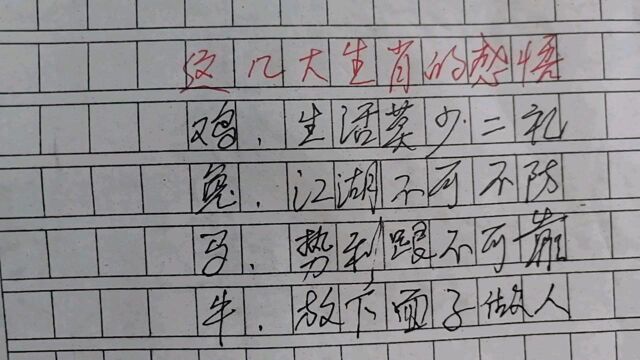 这几大生肖的感悟
鸡.生活莫少二礼
兔.江湖不可不防
马.势利眼不可靠
牛.放下面子做人